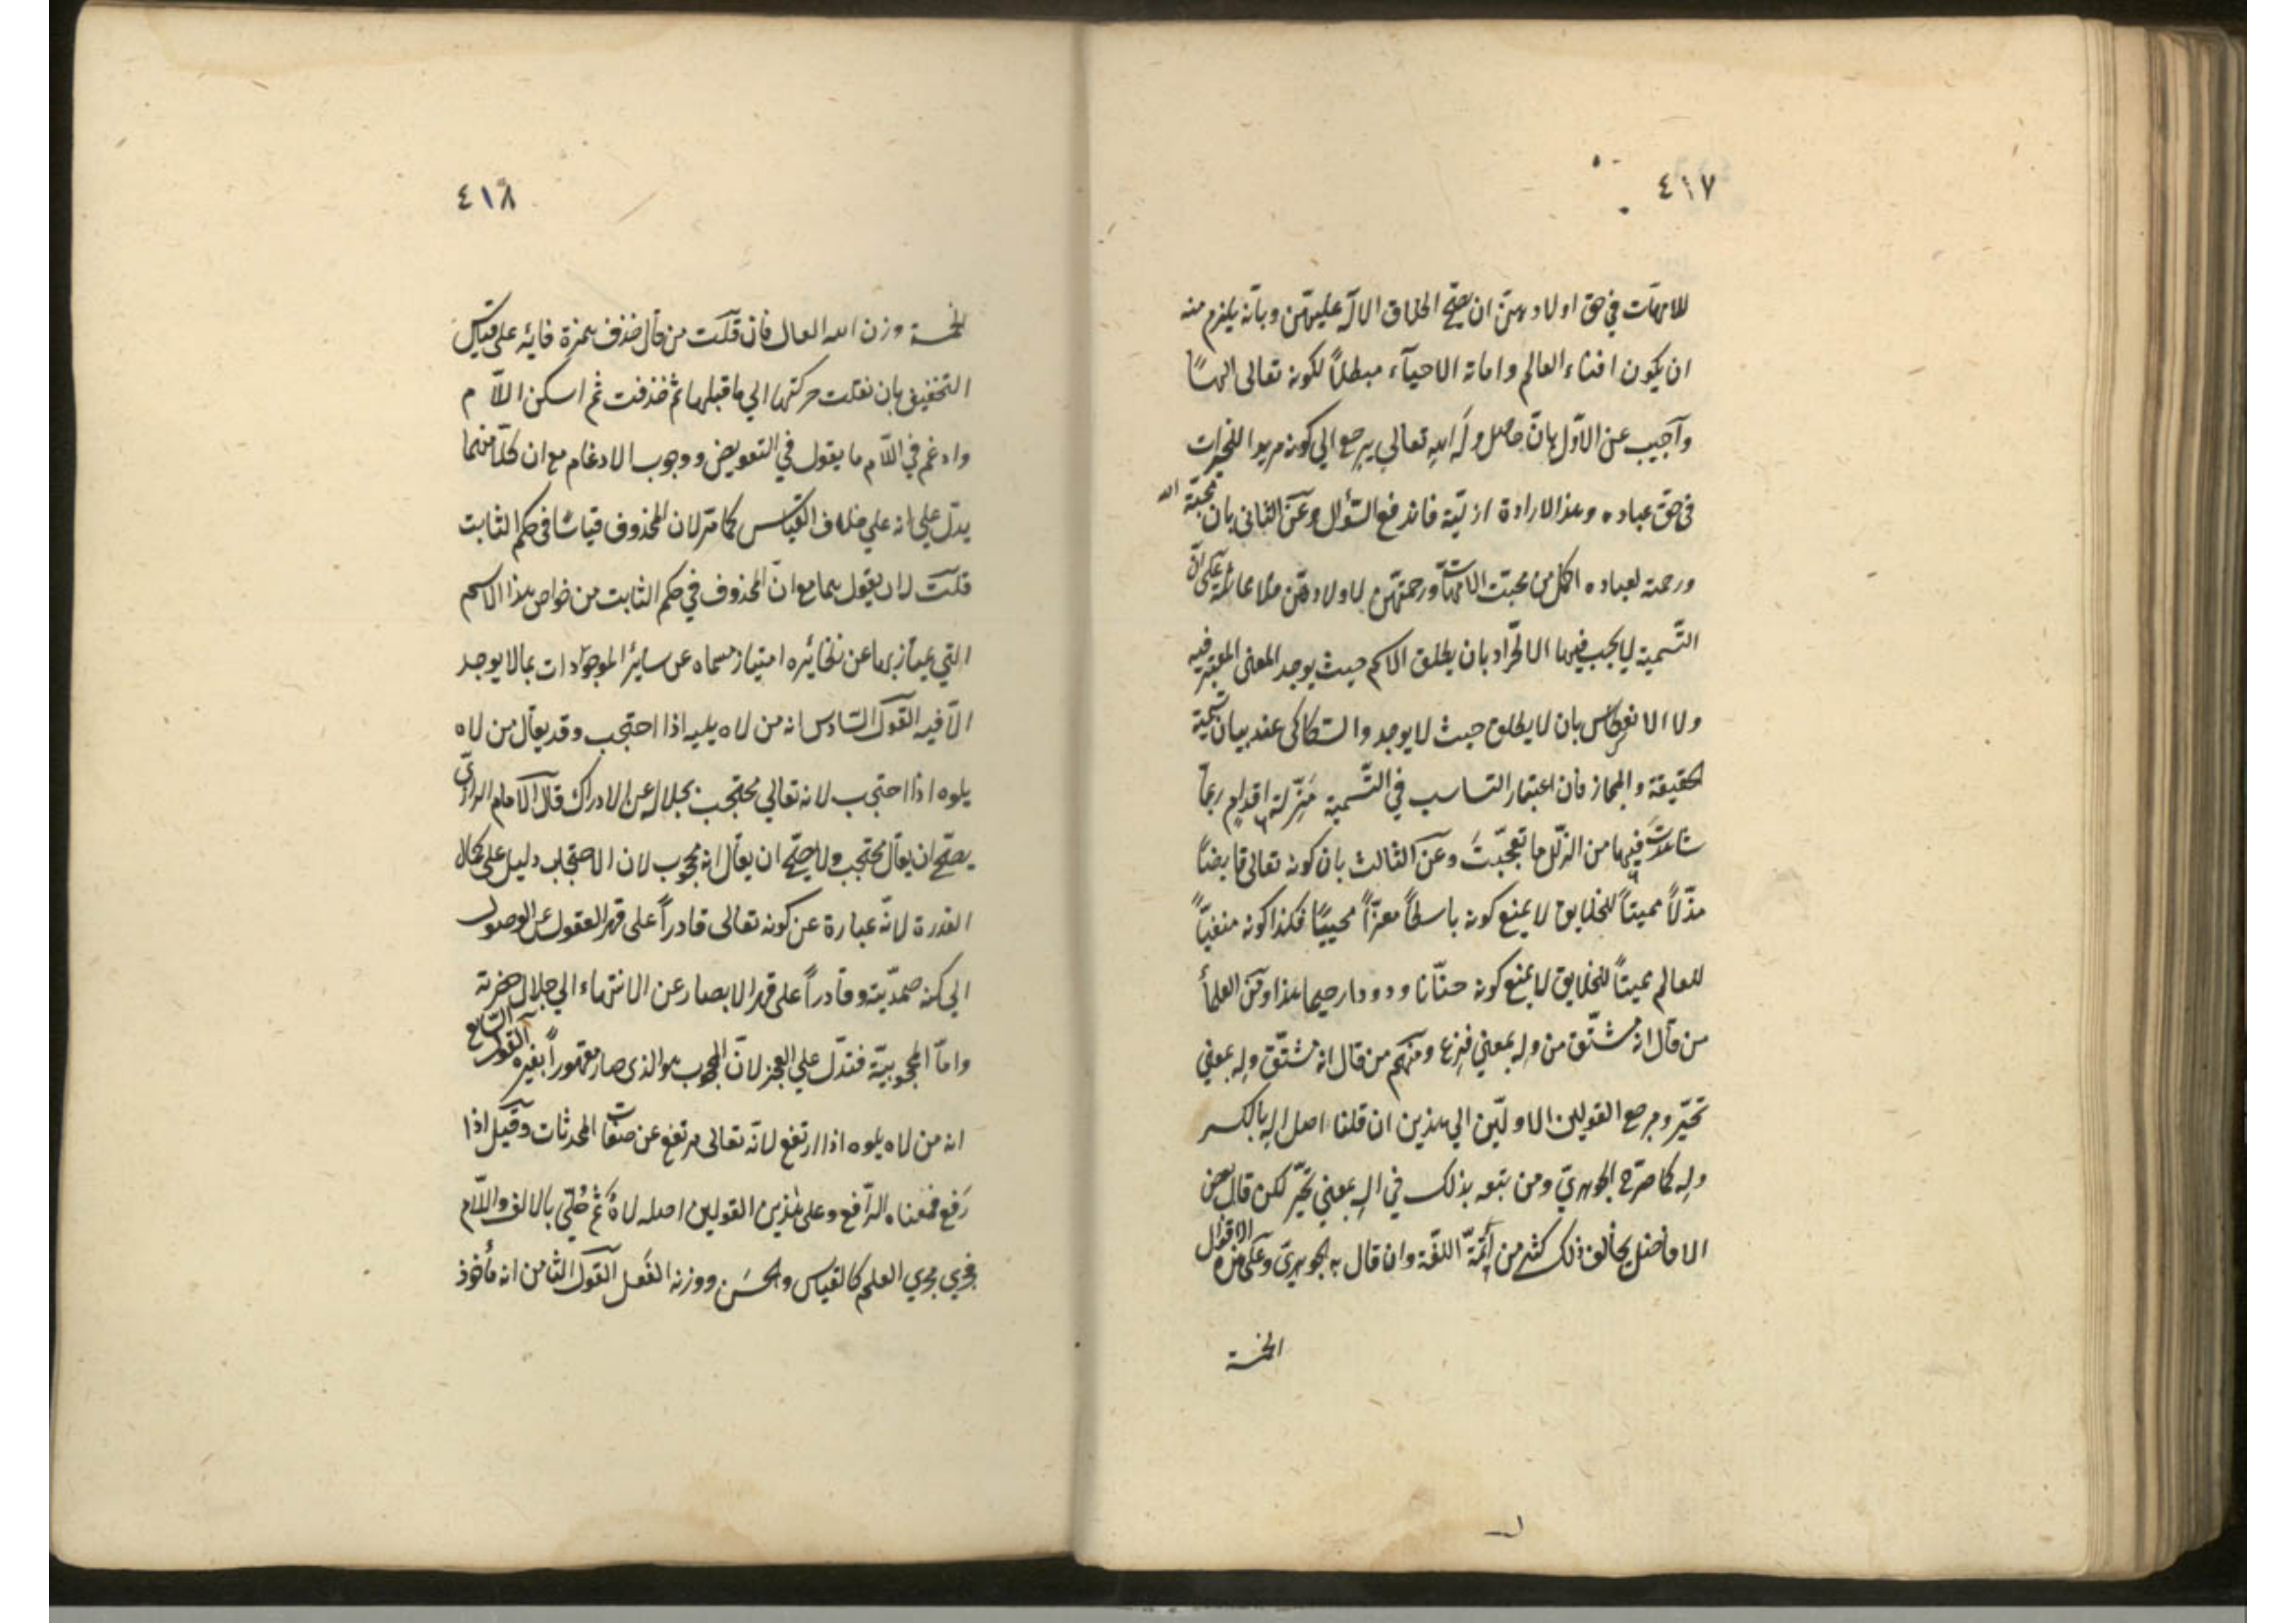 ٤١٧
للامهات في حق اولادهن ان يصح اطلاق الاله عليهن وبانه يلزم منه
ان يكون افناء العالم واماتة الاحياء مبطلاً لكونه تعالى الهاً
وأجيب عن الاوّل بانّ حاصل وله الله تعالى يرجع الي كونه مريدا للخيرات
في حق عباده وهذا الارادة ازليّة فاندفع السّؤال وعن الثاني بان محبّة الله
ورحمته لعباده اكمل من محبّت الامّهات ورحمتهنّ لاولادهنّ على انّ
التّسمية لا يجب فيها الاطّراد بان يطلق الاسم حيث يوجد المعنى المعتبر فيه
ولا الانعكاس بان لا يطلق حيث لا يوجد والسّكاكى عند بيان تسمية
الحقيقة والمجاز فان اعتبار التناسب في التّسمية مَزِلّة اقدامٍ ربما
شاهدتَ فيها من الزّلل ما تعجّبتَ وعن الثالث بان كونه تعالى قابضاً
مذلّاً مميتاً للخلايق لا يمنع كونه باسطاً معزّاً محييًا فكذا كونه مفنياً
للعالم مميتاً للخلايق لا يمنع كونه حنّانا ودودا رحيما هذا ومن العلمأ
من قال انه مشتّق من وله بمعني فزع ومنهم من قال انه مشتّق وله بمعني
تحيّر ومرجع القولين الاولّين الي هذين ان قلنا اصل اله بالكسر
وله كما صرّح الجوهريّ ومن تبعه بذلك في اله بمعني تحيّر لكن قال بعض
الافاضل يخالف ذلك كثير من أئمّة اللغّة وان قال به الجوهريّ وعلى هذه الاقوال
الخمسة
٤١٨
الخمسة وزن الله العال فان قلت من قال حذف همزة فائه على قياس
التخفيف بان نقلت حركتها الي ما قبلها ثم حذفت ثم اسكن اللّام
وادغم في اللّام ما يقول في التعويض ووجوب الادغام مع ان كلّاً منهما
يدّل علي انه علي خلاف القياس كما مرّ لان المحذوف قياسًا في حكم الثابت
قلت له ان يقول هما مع انّ المحذوف في حكم الثابت من خواص هذا الاسم
التي يمتاز بها عن نظائره امتياز مسماه عن ساير الموجودات بما لا يوجد
الّا فيه القول السّادس انه من لاه يليه اذا احتجب وقد يقال من لاه
يلوه اذا احتجب لانه تعالي محتجب بجلاله عن الادراك قال الامام الرازيّ
يصحّ ان يقال محتجب ولا يصحّ ان يقال انه محجوب لان الاحتجاب دليل على كمال
القدرة لانّه عبارة عن كونه تعالى قادراً على قهر العقول عن الوصول
الي كنه صمديّته وقادراً على قهر الابصار عن الانتهاء الي جلال حضرته
وامّا المحجوبيّة فتدّل علي العجز لانّ المحجوب هو الذى صار مقهوراً بغيره القول السّابع
انه من لاه يلوه اذا ارتفع لانّه تعالى مرتفع عن صفات المحدثات وقيل اذا
رَفع فمعناه الرّافع وعلى هذين القولين اصله لاهٌ ثم حُلّي بالالف واللّام
فجري مجري العلم كالقياس والحسَن ووزنه الفَعل القول الثامن انه مأخوذ